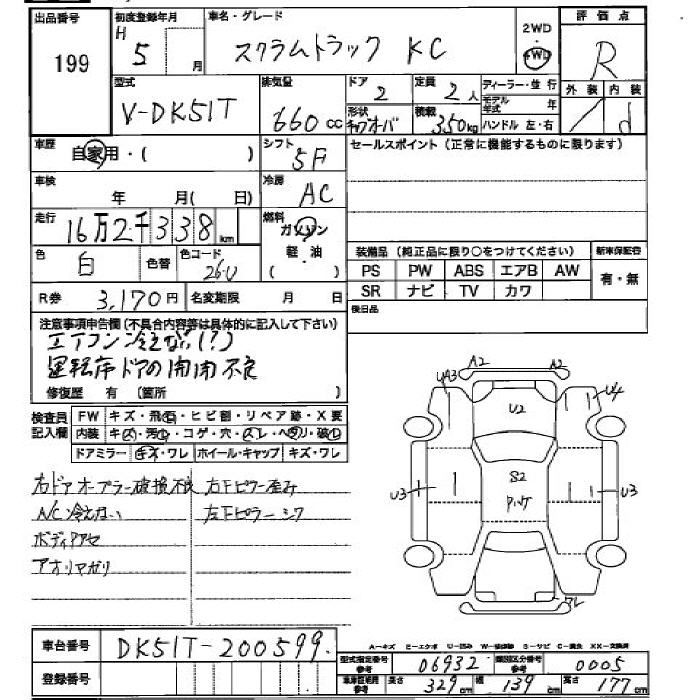 出品番号 199
初度登録年月 H 5 月
車名・グレード スクラムトラック KC
2WD
4WD
評価点 R
外装 内装 d
型式 V-DK51T
排気量 660 cc
ドア 2
定員 2人
ディーラー・並行
形状 キャブオーバ
積載 350kg
モデル年式 年
ハンドル 左・右
車歴 自家用・( )
シフト 5F
セールスポイント(正常に機能するものに限ります)
車検 年 月( 日)
冷房 AC
走行 16万2千338km
燃料 ガソリン
軽・油
( )
色 白 色替
色コード 26U
装備品(純正品に限り○をつけてください)
新車保証書
PS PW ABS エアB AW
有・無
SR ナビ TV カワ
R券 3,170円
名変期限 月 日
後日品
注意事項申告欄(不具合内容等は具体的に記入して下さい)
エアコン冷えない(?)
運転席ドアの開閉不良
修復歴 有 (箇所 )
検査員記入欄
FW キズ・飛石・ヒビ割・リペア跡・X要
内装 キズ・汚れ・コゲ・穴・スレ・ヘタリ・破れ
ドアミラー キズ・ワレ ホイール・キャップ キズ・ワレ
右ドアオープナー破損不良 右下ピラー歪み
A/C冷えない 左下ピラーシワ
ボディアセ
アオリマガリ
A2 A2
UA3 U4
U2
S2
U3 U3
ワレ
A-キズ E-エクボ U-凹み W-修跡 S-サビ C-腐食 XX-交換済
車台番号 DK51T-200599.
登録番号
型式指定番号 参考 06932
類別区分番号 参考 0005
車庫証明用 参考 長さ 329cm 幅 139cm 高さ 177cm